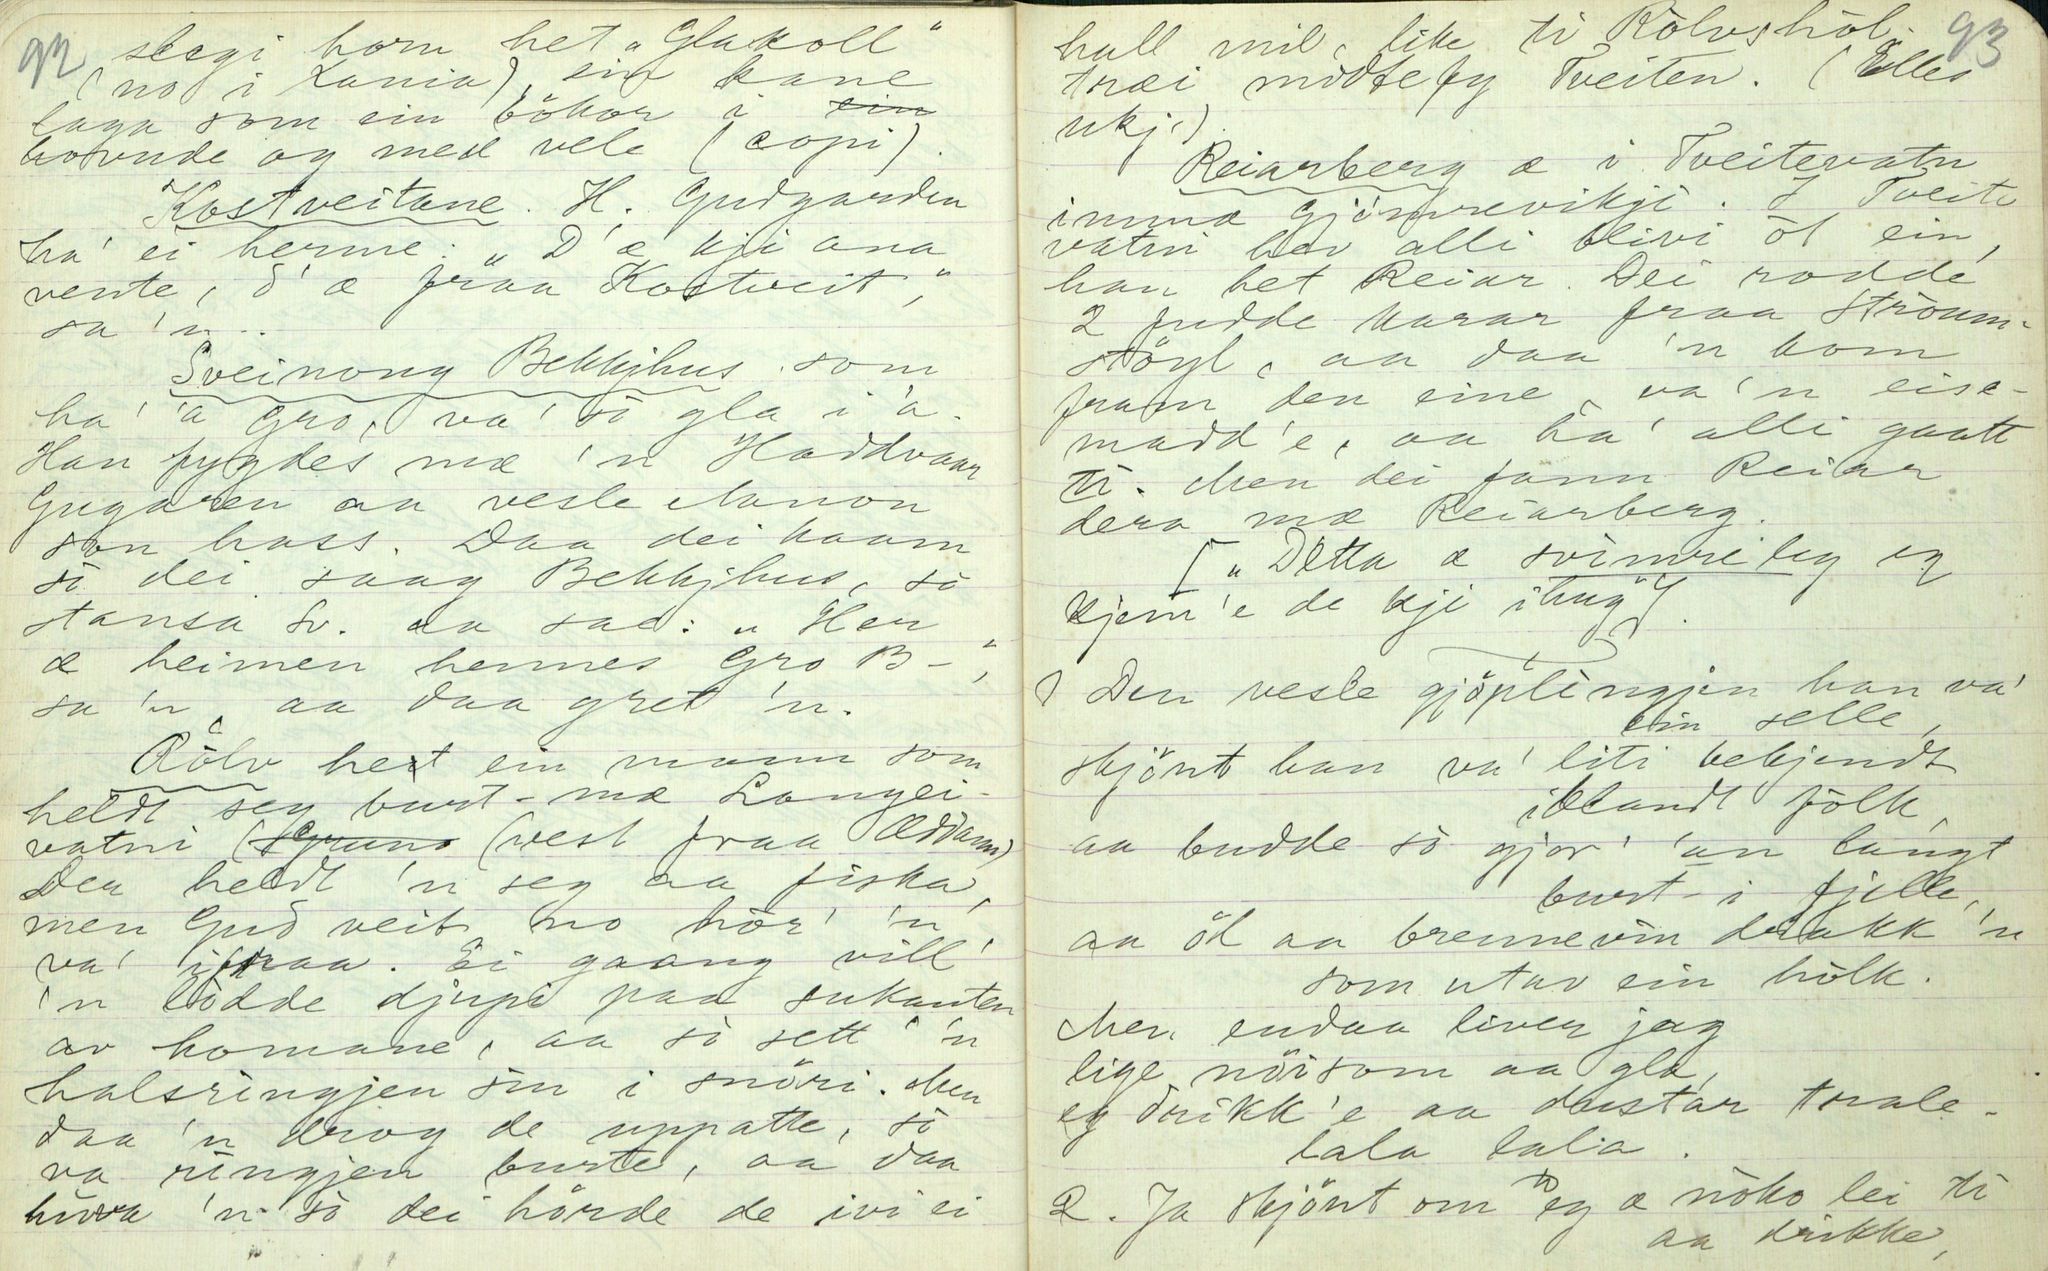 92
slegi horn het "Glakoll"
(no i Kania), ein kane
laga som ein bökar i sin
hovude og med vele (copi).
Kostveitane. H. Gudgarden
ha' ei herme: "D'æ kji ana
vente, d'æ fraa Kostveit,"
sa 'n.
Sveinong Bekkjhus som
ha' 'a Gro, va' so gla i 'a.
Han fygdes mæ 'n Haddvaar
Gugaren aa vesle Aanon
son hass. Daa dei kaam
so dei saag Bekkjhus, so
stansa Sv. aa sae: "Her
æ heimen hennes Gro B-",
sa 'n, aa daa gret 'n.
Rölv het ein mann som
heldt seg burt-mæ Langei-
vatni (vest fraa Øddann)
Der heldt 'n seg aa fiska,
men Gud veit no hör' 'n
va' ifraa. Ei gaang vill'
'n lodde djupi paa sukanten
av homane, aa so sett 'n
halsringjen sin i snöri. Men
daa 'n drog de uppatte, so
va ringjen burte, aa daa
huva 'n so dei hörde de ivi ei
93
hall mil, like ti Rölvshöl-
træi midtefy Tveiten. (Elles
ukj.)
Reiarberg æ i Tveitevatn
inna Gjömrevikji. I Tveite
vatni hev alli blivi öl ein,
han het Reiar. Dei rodde
2 fudde karar fraa Straum-
stöyl, aa daa 'n kom
fram den eine, va 'n eise-
madd'e, aa ha' alli gaatt
ti. Men dei fann Reiar
dera mæ Reiarberg.
["Detta æ svimreleg eg
kjem'e de kji ihug"].
1 Den vesle gjöplingjen han va'
ein selle,
skjönt han va' liti bekjendt
iblandt folk,
aa budde so gjor' 'an langt
burt-i fjelle,
aa öl aa brennevin drakk 'n
som utav ein hölk.
Men endaa liver jeg
lige nöisom aa gla,
eg drikk'e aa dustar trale-
lala lala.
2. Ja skjönt om eg æ noko lei ti
aa drikke,